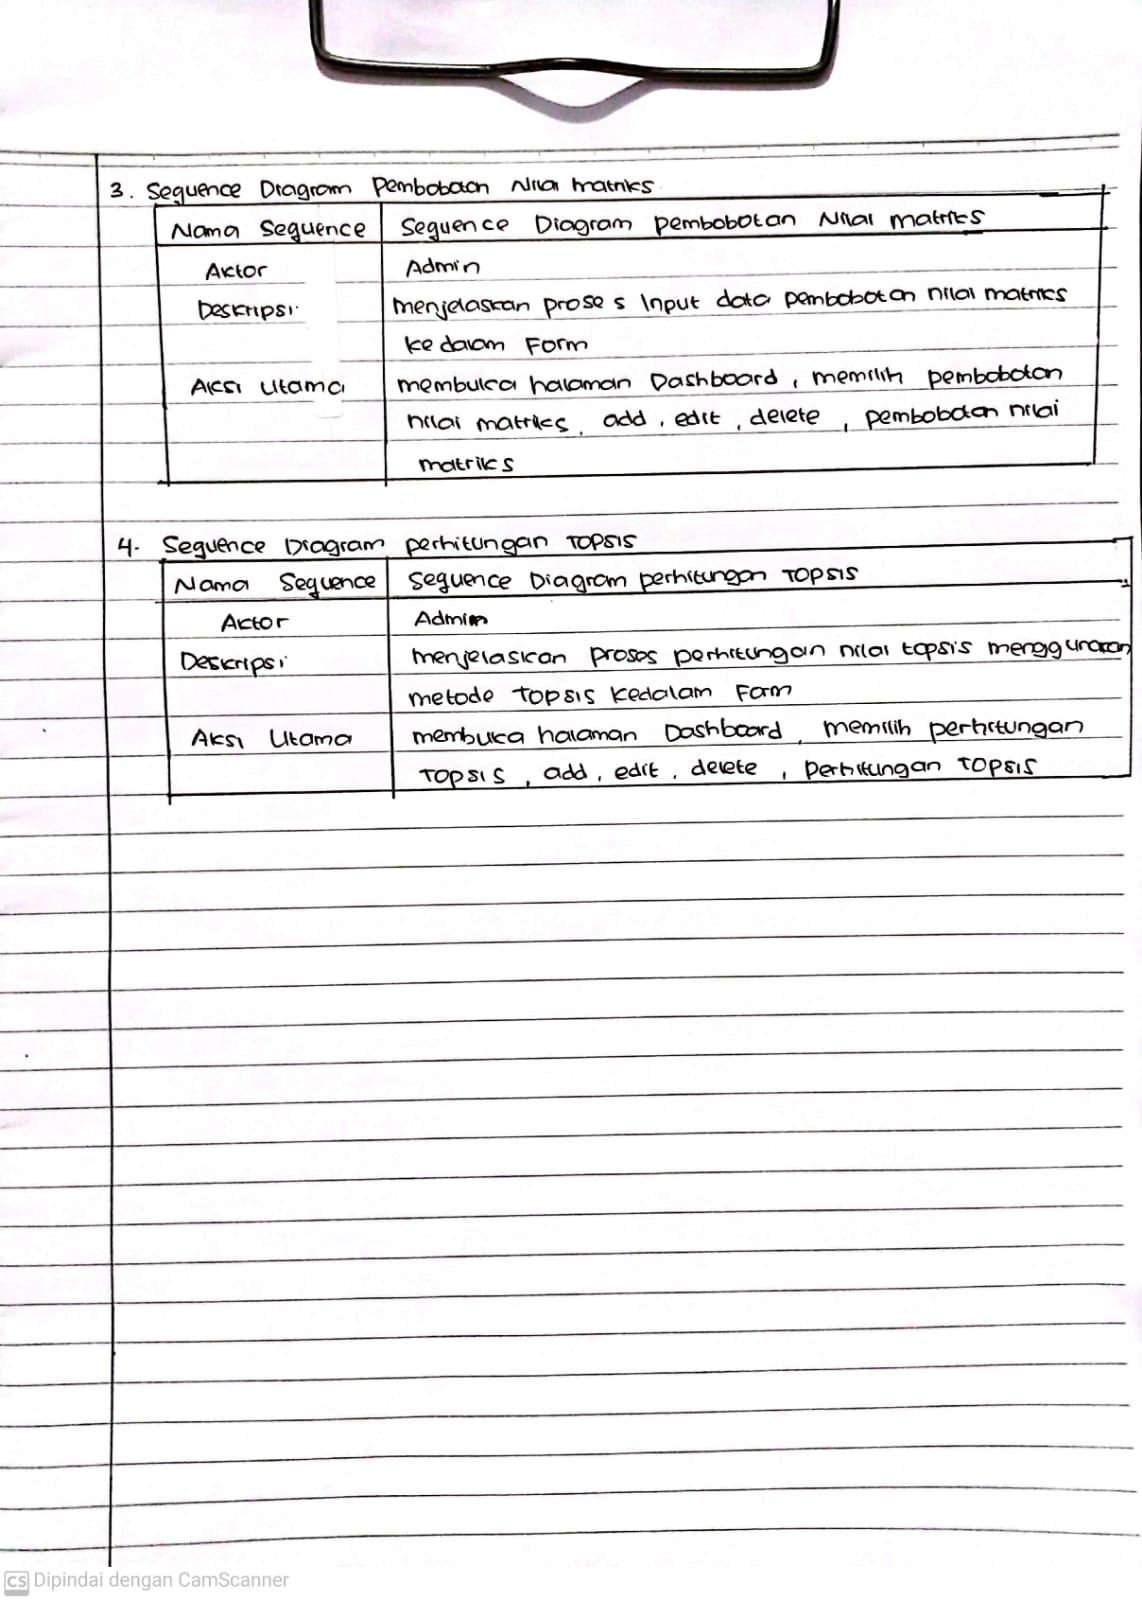 3. Sequence Diagram Pembobotan Nilai matriks
Nama Sequence Sequence Diagram pembobotan Nilai matriks
Aktor Admin
Deskripsi menjelaskan proses Input data pembobotan nilai matriks
ke dalam Form
Aksi Utama membuka halaman Dashboard, memilih pembobotan
nilai matriks, add, edit, delete, pembobotan nilai
matriks
4. Sequence Diagram perhitungan TOPSIS
Nama Sequence Sequence Diagram perhitungan TOPSIS
Aktor Admin
Deskripsi menjelaskan proses perhitungan nilai topsis menggunakan
metode TOPSIS kedalam Form
Aksi Utama membuka halaman Dashboard, memilih perhitungan
TOPSIS, add, edit, delete, perhitungan TOPSIS
CS Dipindai dengan CamScanner